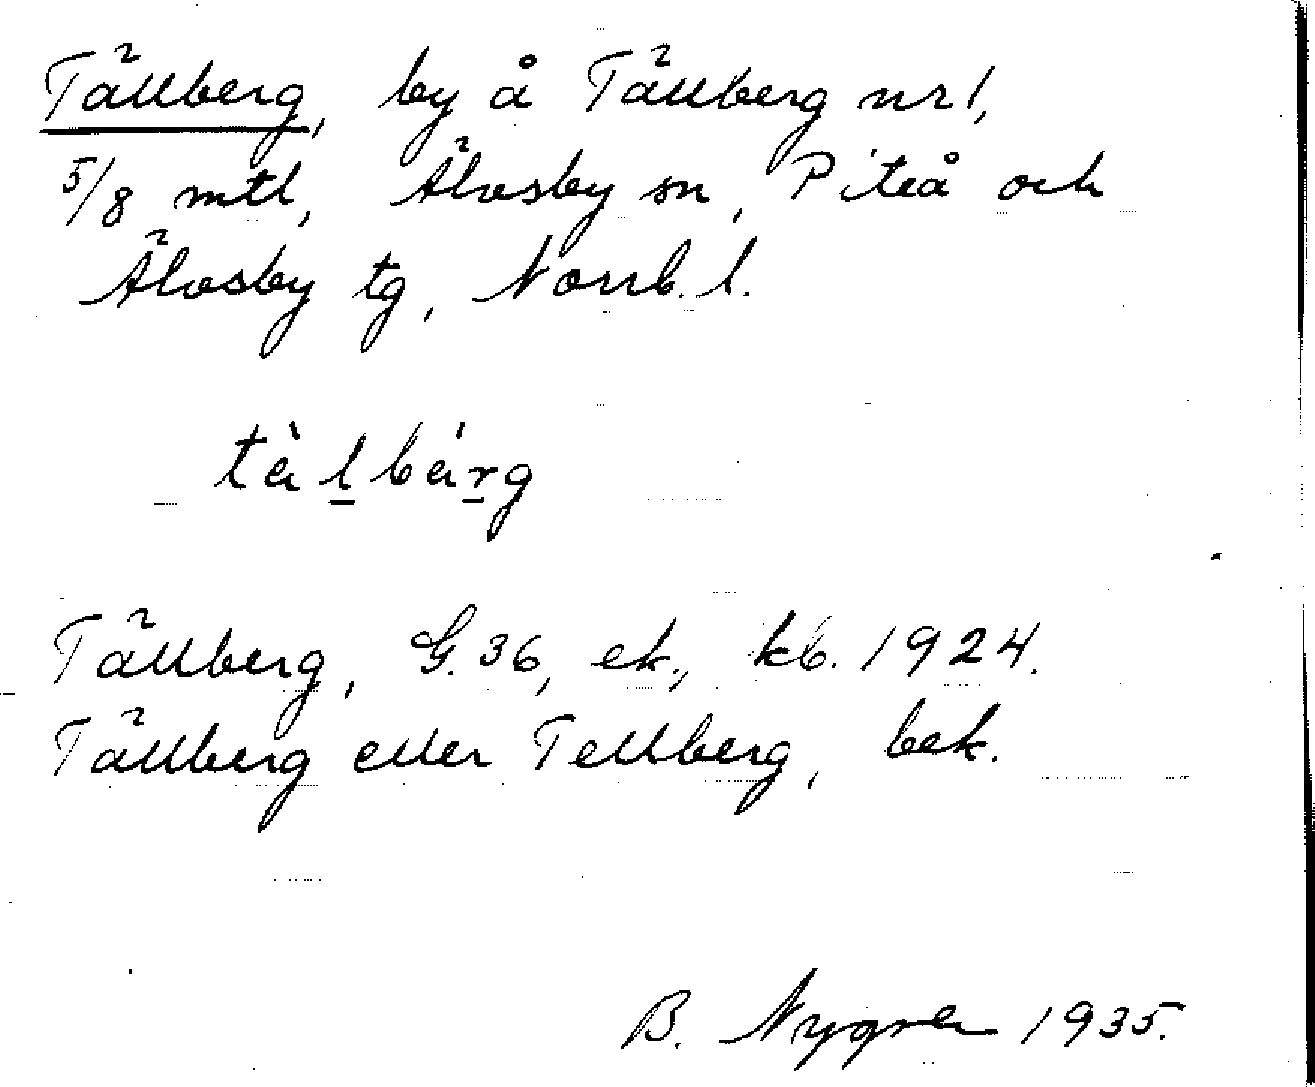 Tällberg, by å Tällberg nr 1,
5/8 mtl, Älvsby sn, Piteå och
Älvsby tg, Norrb. l.
tàḻbáṟg
Tällberg, G. 36, ek., kb. 1924.
Tällberg eller Tellberg, bek.
B. Nygren 1935.